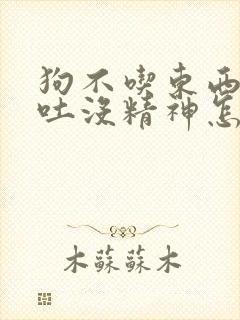 狗不喫東西
吐沒精神怎
木蘇蘇木